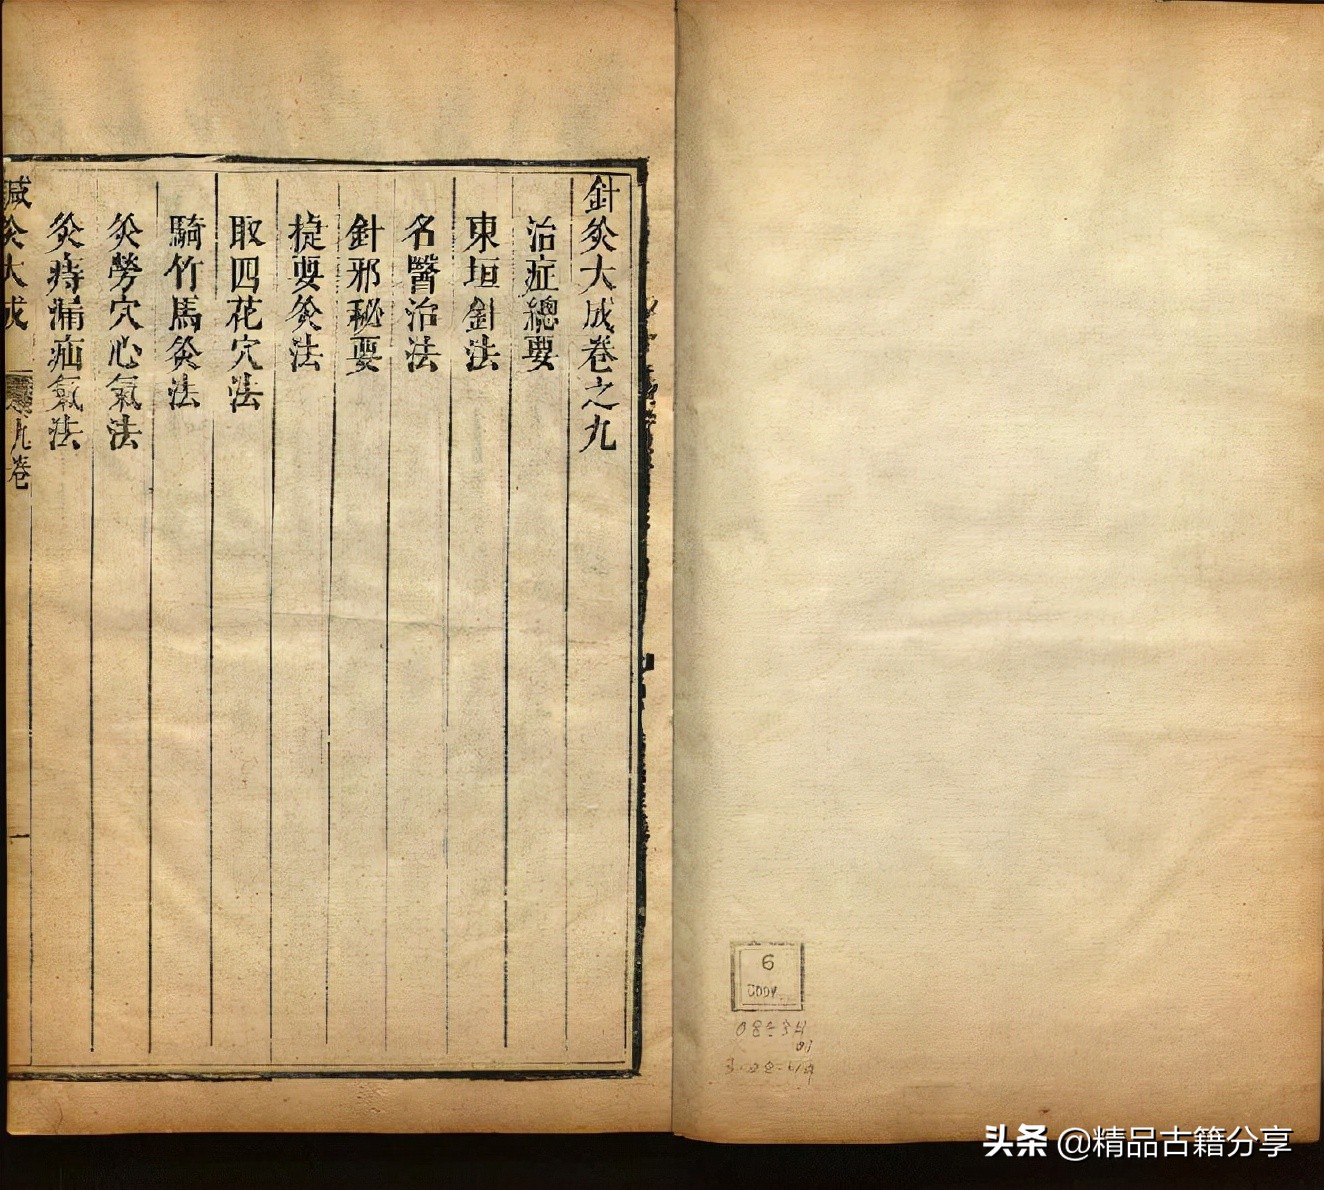 針灸大成卷之九
治症總要
東垣針法
名醫治法
針邪秘要
捷要灸法
取四花穴法
騎竹馬灸法
灸勞穴心氣法
灸痔漏疝氣法
鍼灸大成
九卷
一
6
COPY
头条 @精品古籍分享